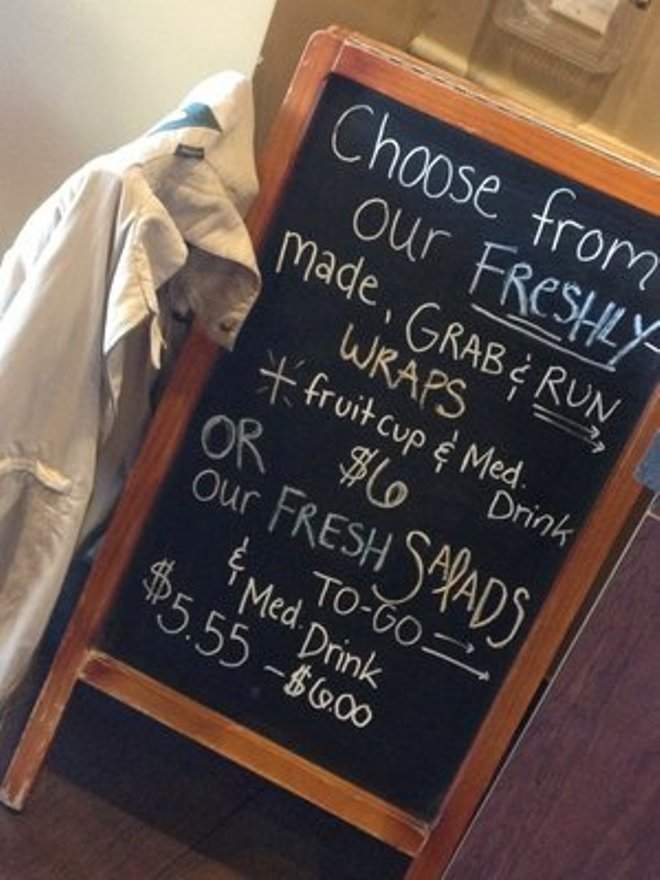 Choose from
our FRESHLY
made, GRAB & RUN
WRAPS
* fruit cup & Med. Drink
$6
OR
our FRESH SALADS
TO-GO
& Med. Drink
$5.55 - $6.00